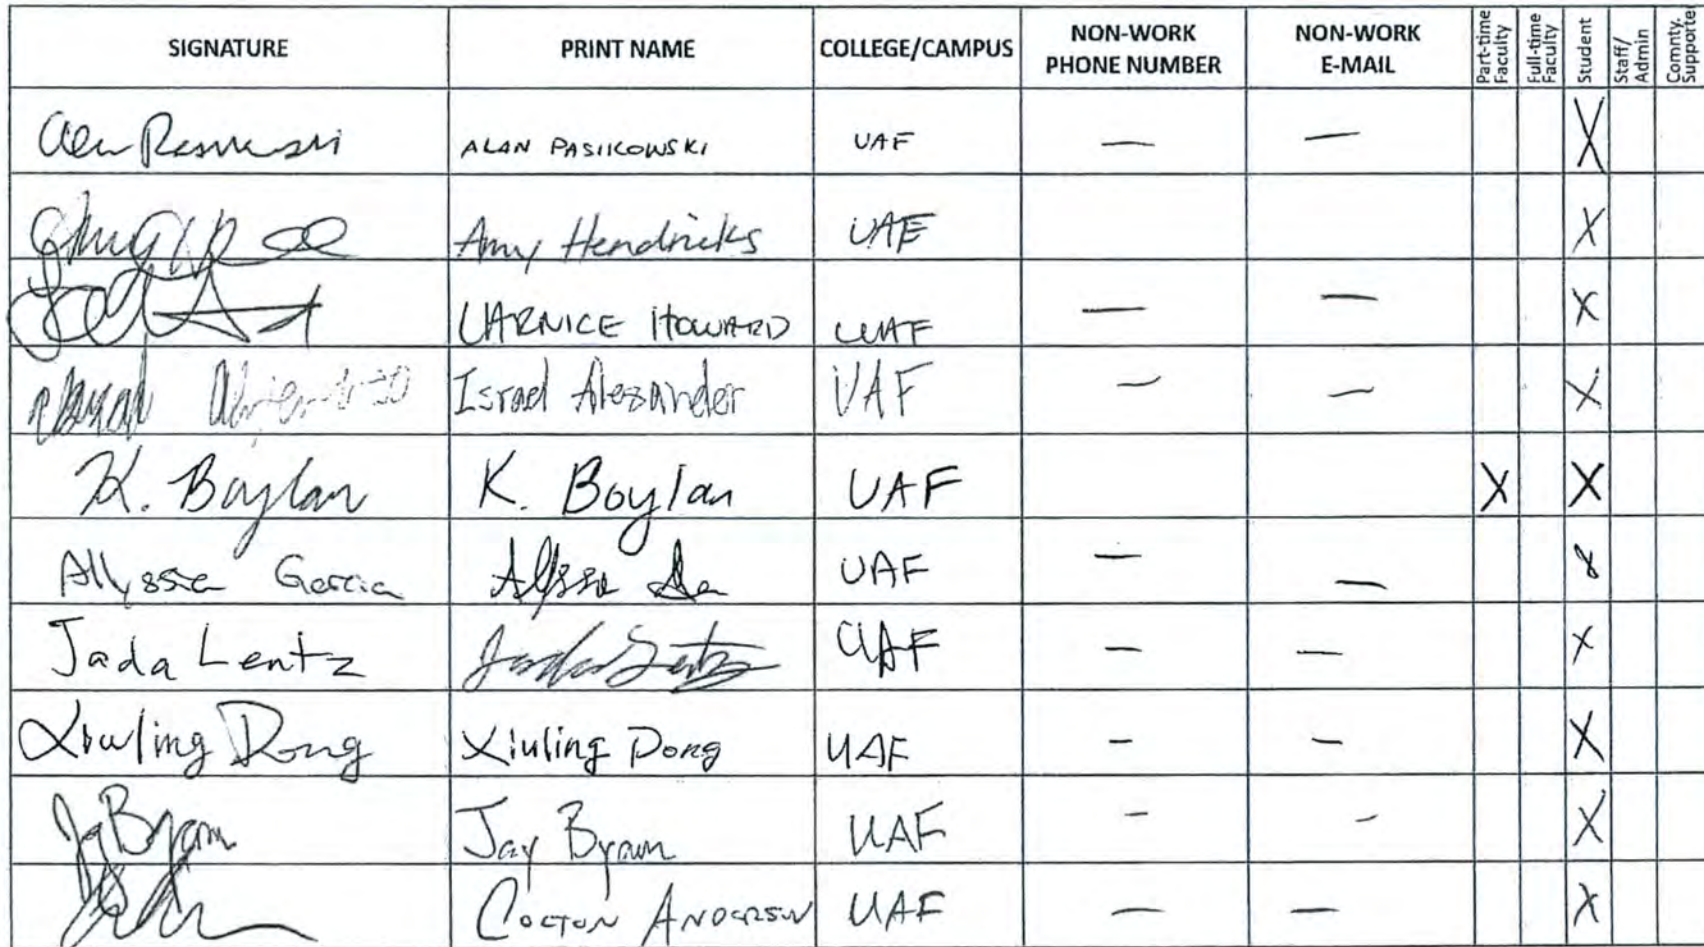 SIGNATURE PRINT NAME COLLEGE/CAMPUS NON-WORK PHONE NUMBER NON-WORK E-MAIL Part-time Faculty Full-time Faculty Student Staff/ Admin Comnty. Supporter
ALAN PASIKOWSKI UAF — — X
Amy Hendricks UAF X
HOWARD UAF — — X
Israel Alexander UAF — — X
K. Boylan K. Boylan UAF X X
Allyssa Garcia UAF — — X
Jada Lentz Jada Lentz UAF — — X
Xiuling Dong Xiuling Dong UAF — — X
Jay Byam Jay Byam UAF — — X
ANDERSON UAF — — X